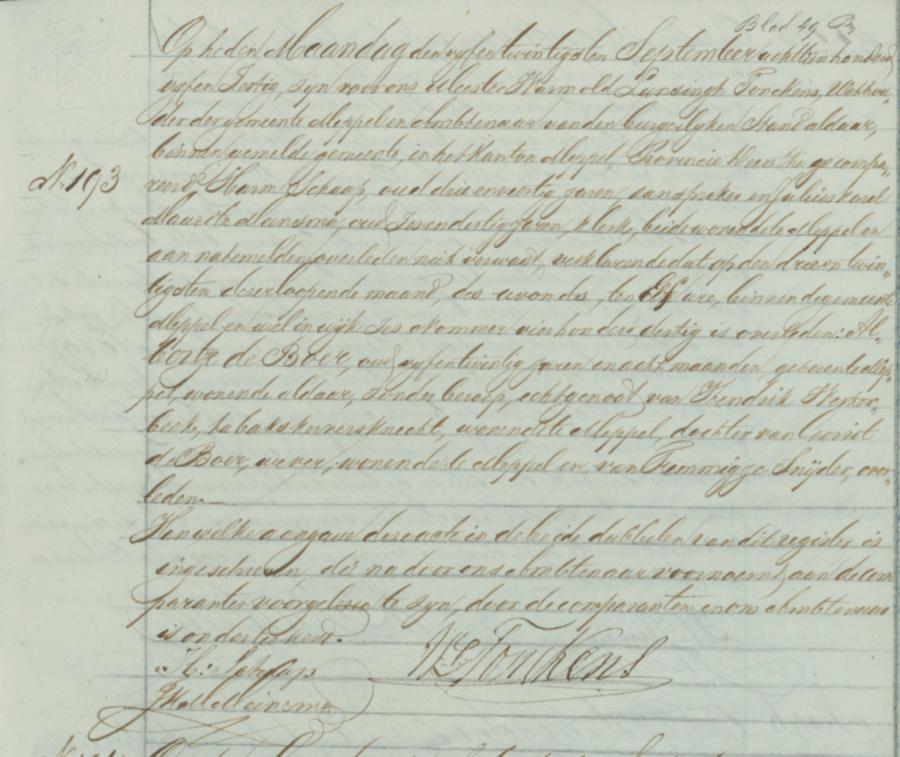 Blad 49 B
Op heden Maandag den vyfentwintigsten September achttienhonderd
vyfenvertig, zyn voor ons Meester Warmold Lunsingh Tonckens, Wethou-
der der gemeente Meppel en Ambtenaar van den burgerlyken Stand aldaar,
binnen gemelde gemeente, in het kanton Meppel, Provincie Drenthe, gecompa-
N. 193
reerd, Harm Schaap, oud drieenveertig jaren, aanspreker en Julius Karel
Maurits Meinsma, oud zesendertig jaren, klerk, beide wonende te Meppel en
aan natemelden overleden niet verwant, verklarende dat op den drieentwin-
tigsten dezer loopende maand, des avonds, ten Elf ure, binnen de gemeente
Meppel, en wel in wijk zes nommer vierhonderd dertig is overleden: Al-
bertje de Boer, oud vyfentwintig jaren en acht maanden, geboren te Mep-
pel, wonende aldaar, zonder beroep, echtgenoot van Hendrik
beek, tabakskerversknecht, wonende te Meppel, dochter van Gerrit
de Boer, wever, wonende te Meppel en van Femmigje Snijder, over-
leden.
Van welke aangave deze acte in de beide dubbelen van dit register is
ingeschreven, die na door ons Ambtenaar voornoemd, aan de com-
paranten voorgelezen te zyn, door de comparanten en ons Ambtenaar
is onderteekend.
H: Schaap
WL Tonckens
JKM Meinsma